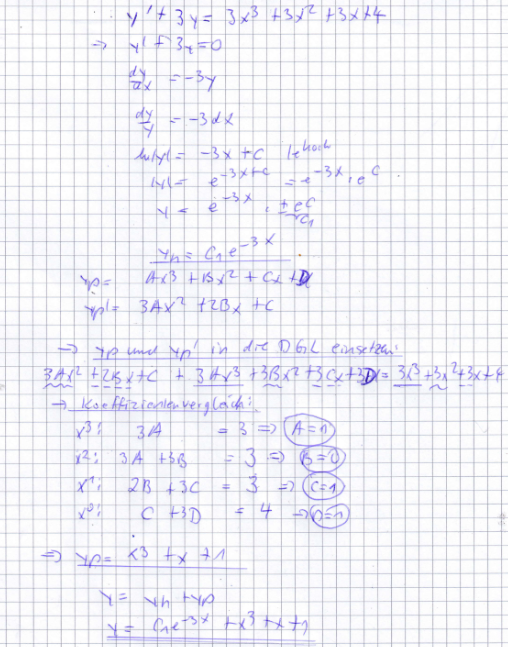 y' + 3y = 3x³ + 3x² + 3x + 4
⇒ y' + 3y = 0
dy/dx = -3y
dy/y = -3dx
ln|y| = -3x + C | e^hoch
|y| = e^(-3x+C) = e^(-3x) · e^C
y = e^(-3x) · ±e^C
C₁
yh = C₁e^(-3x)
yp = Ax³ + Bx² + Cx + D
yp' = 3Ax² + 2Bx + C
→ yp und yp' in die DGL einsetzen:
3Ax² + 2Bx + C + 3Ax³ + 3Bx² + 3Cx + 3D = 3x³ + 3x² + 3x + 4
→ Koeffizientenvergleich:
x³: 3A = 3 ⇒ A = 1
x²: 3A + 3B = 3 ⇒ B = 0
x¹: 2B + 3C = 3 ⇒ C = 1
x⁰: C + 3D = 4 ⇒ D = 1
⇒ yp = x³ + x + 1
y = yh + yp
y = C₁e^(-3x) + x³ + x + 1